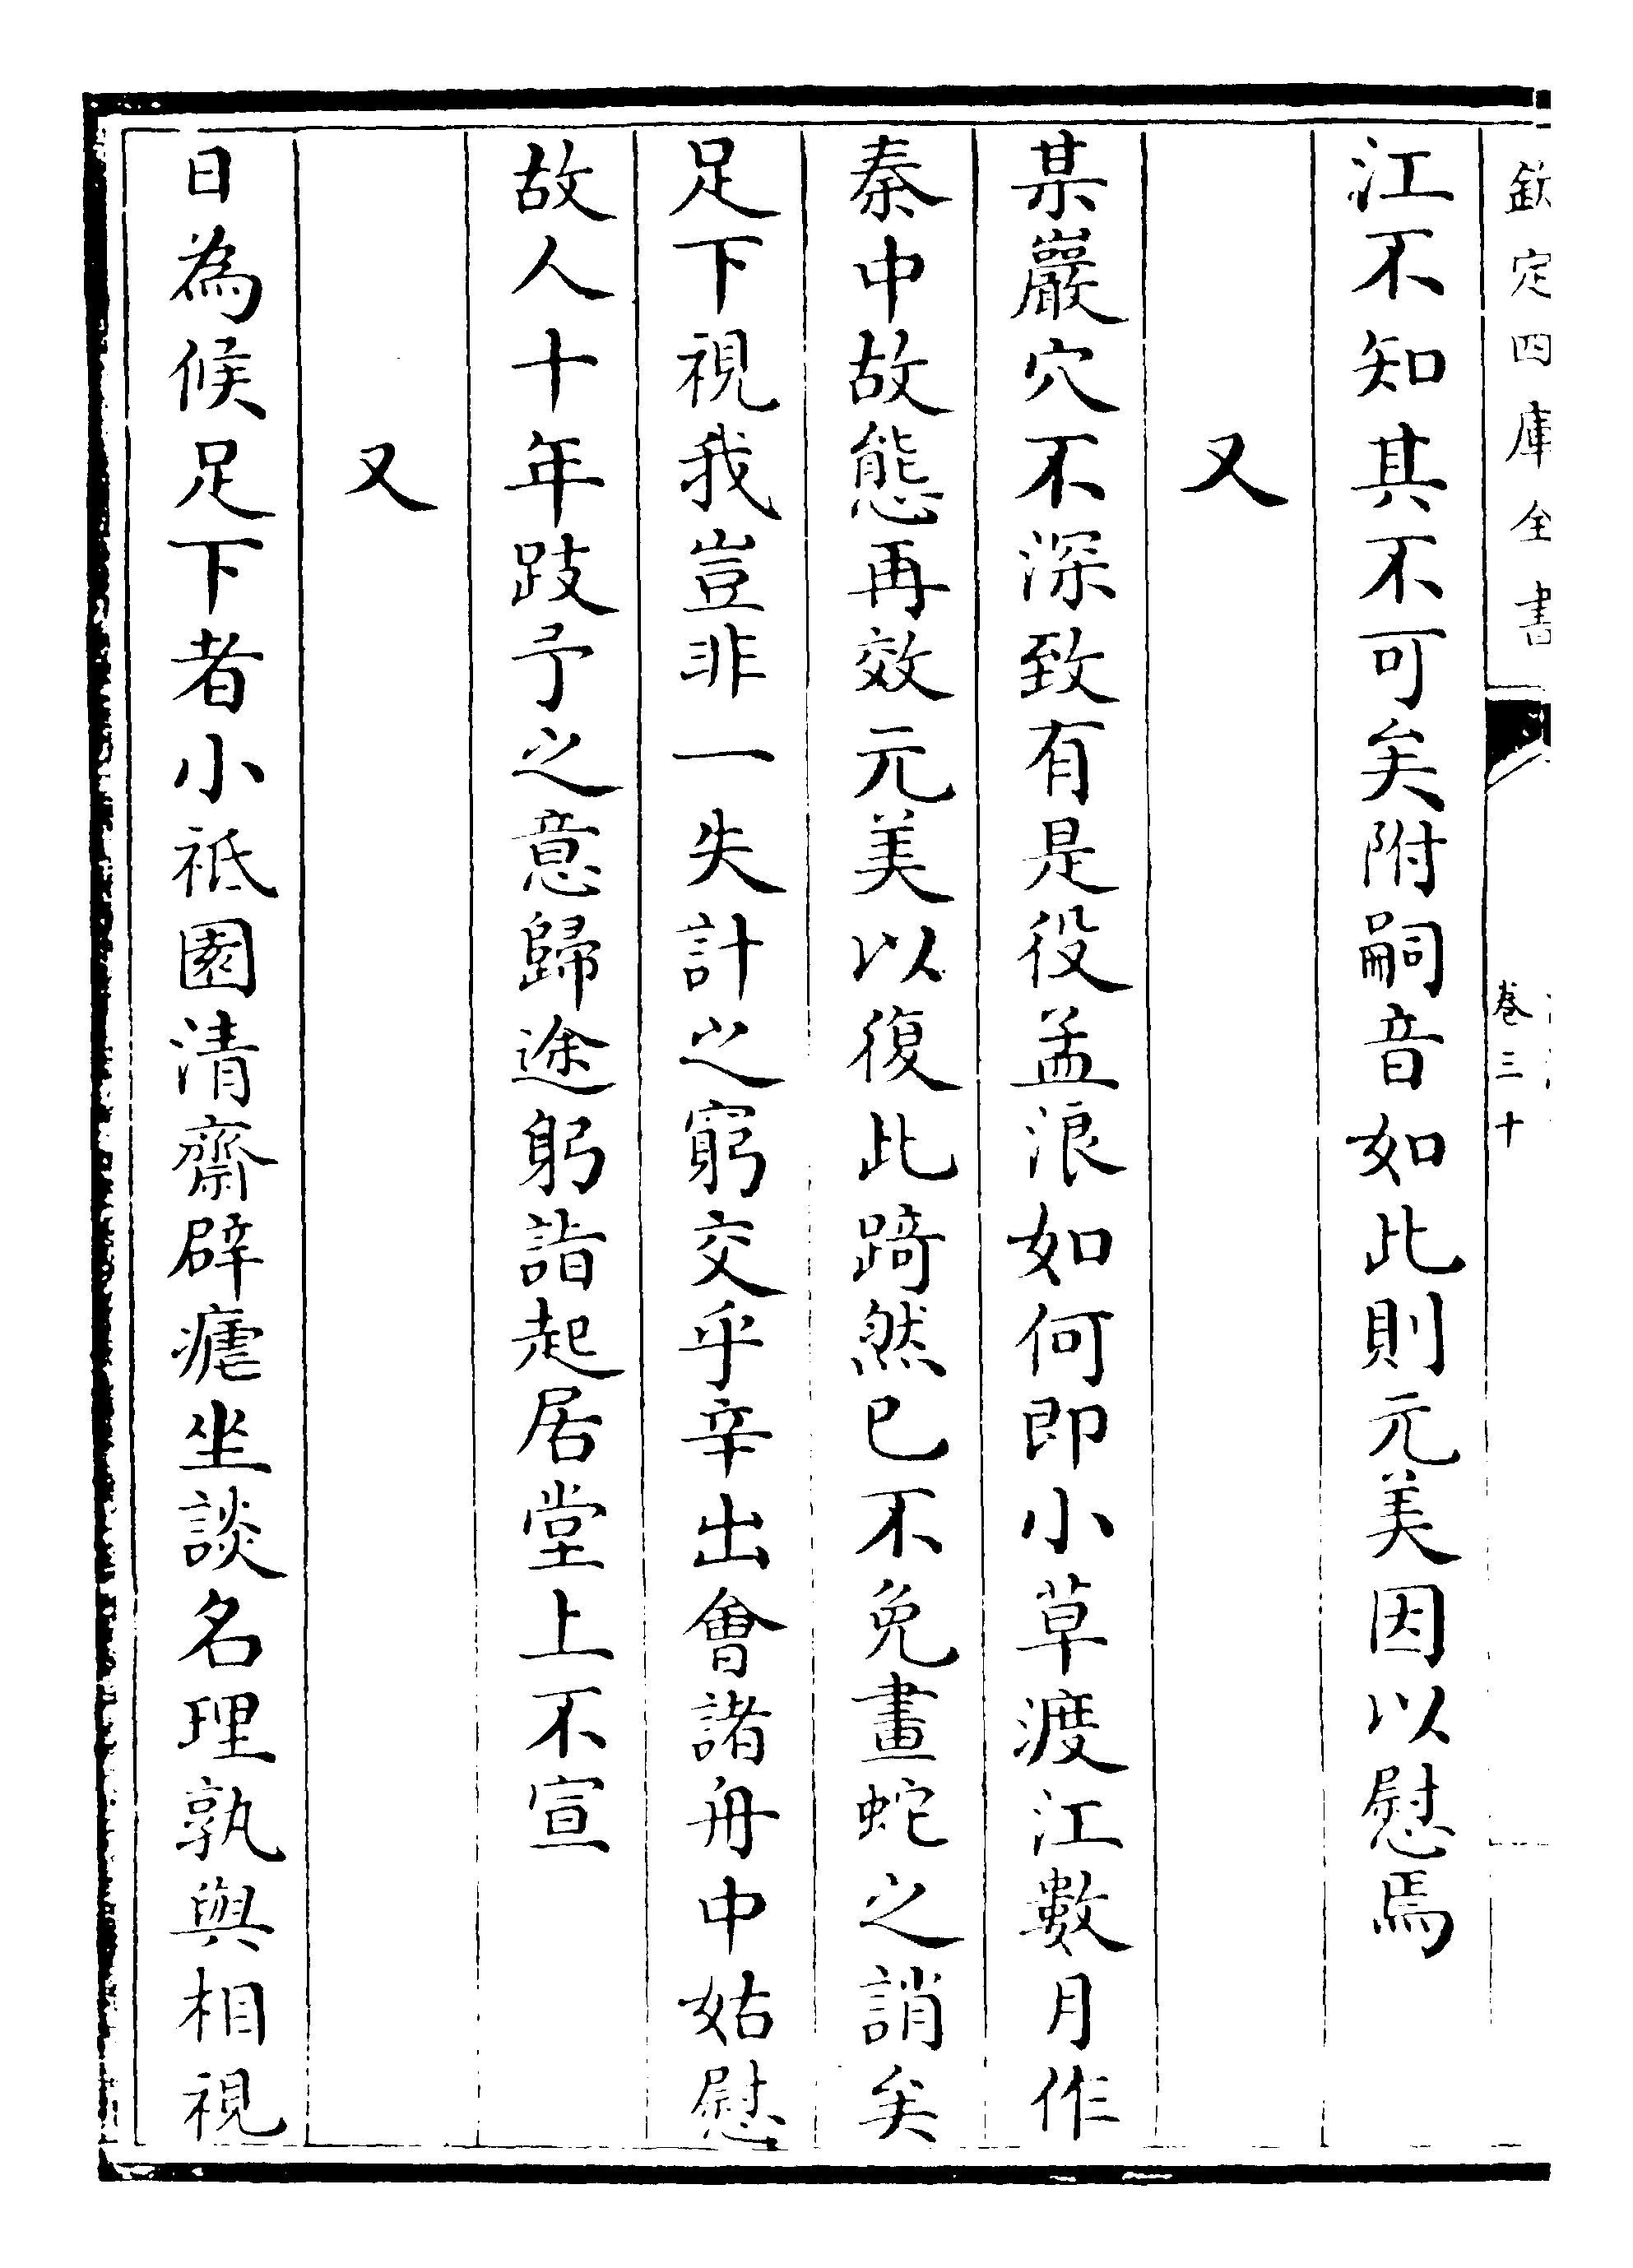 欽定四庫全書
卷三十
江不知其不可矣附嗣音如此則元美因以慰焉
又
某巖穴不深致有是役孟浪如何即小草渡江數月作
秦中故態再效元美以復此踦然已不免畫蛇之誚矣
足下視我豈非一失計之窮交乎辛出會諸舟中姑慰
故人十年跂予之意歸途躬詣起居堂上不宣
又
日為候足下者小祗園清齋辟瘧坐談名理孰與相視